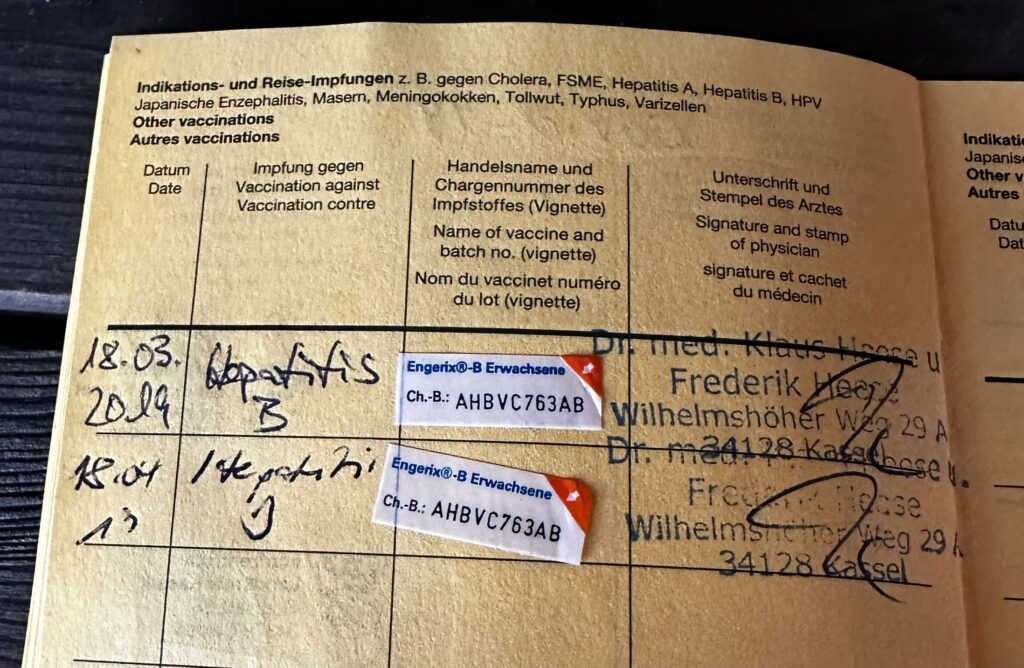 Indikations- und Reise-Impfungen z. B. gegen Cholera, FSME, Hepatitis A, Hepatitis B, HPV
Japanische Enzephalitis, Masern, Meningokokken, Tollwut, Typhus, Varizellen
Other vaccinations
Autres vaccinations
Datum
Date
Impfung gegen
Vaccination against
Vaccination contre
Handelsname und
Chargennummer des
Impfstoffes (Vignette)
Name of vaccine and
batch no. (vignette)
Nom du vaccinet numéro
du lot (vignette)
Unterschrift und
Stempel des Arztes
Signature and stamp
of physician
signature et cachet
du médecin
18.03.
2019
Hepatitis
B
Engerix®-B Erwachsene
Ch.-B.: AHBVC763AB
Dr. med. Klaus Heese u
Frederik Heese
Wilhelmshöher Weg 29 A
34128 Kassel
18.04
Hepatitis
Engerix®-B Erwachsene
Ch.-B.: AHBVC763AB
Dr. med. Heese u.
Frederik Heese
Wilhelmshöher Weg 29 A
34128 Kassel
Indikati
Japanis
Other v
Autres
Datu
Dat